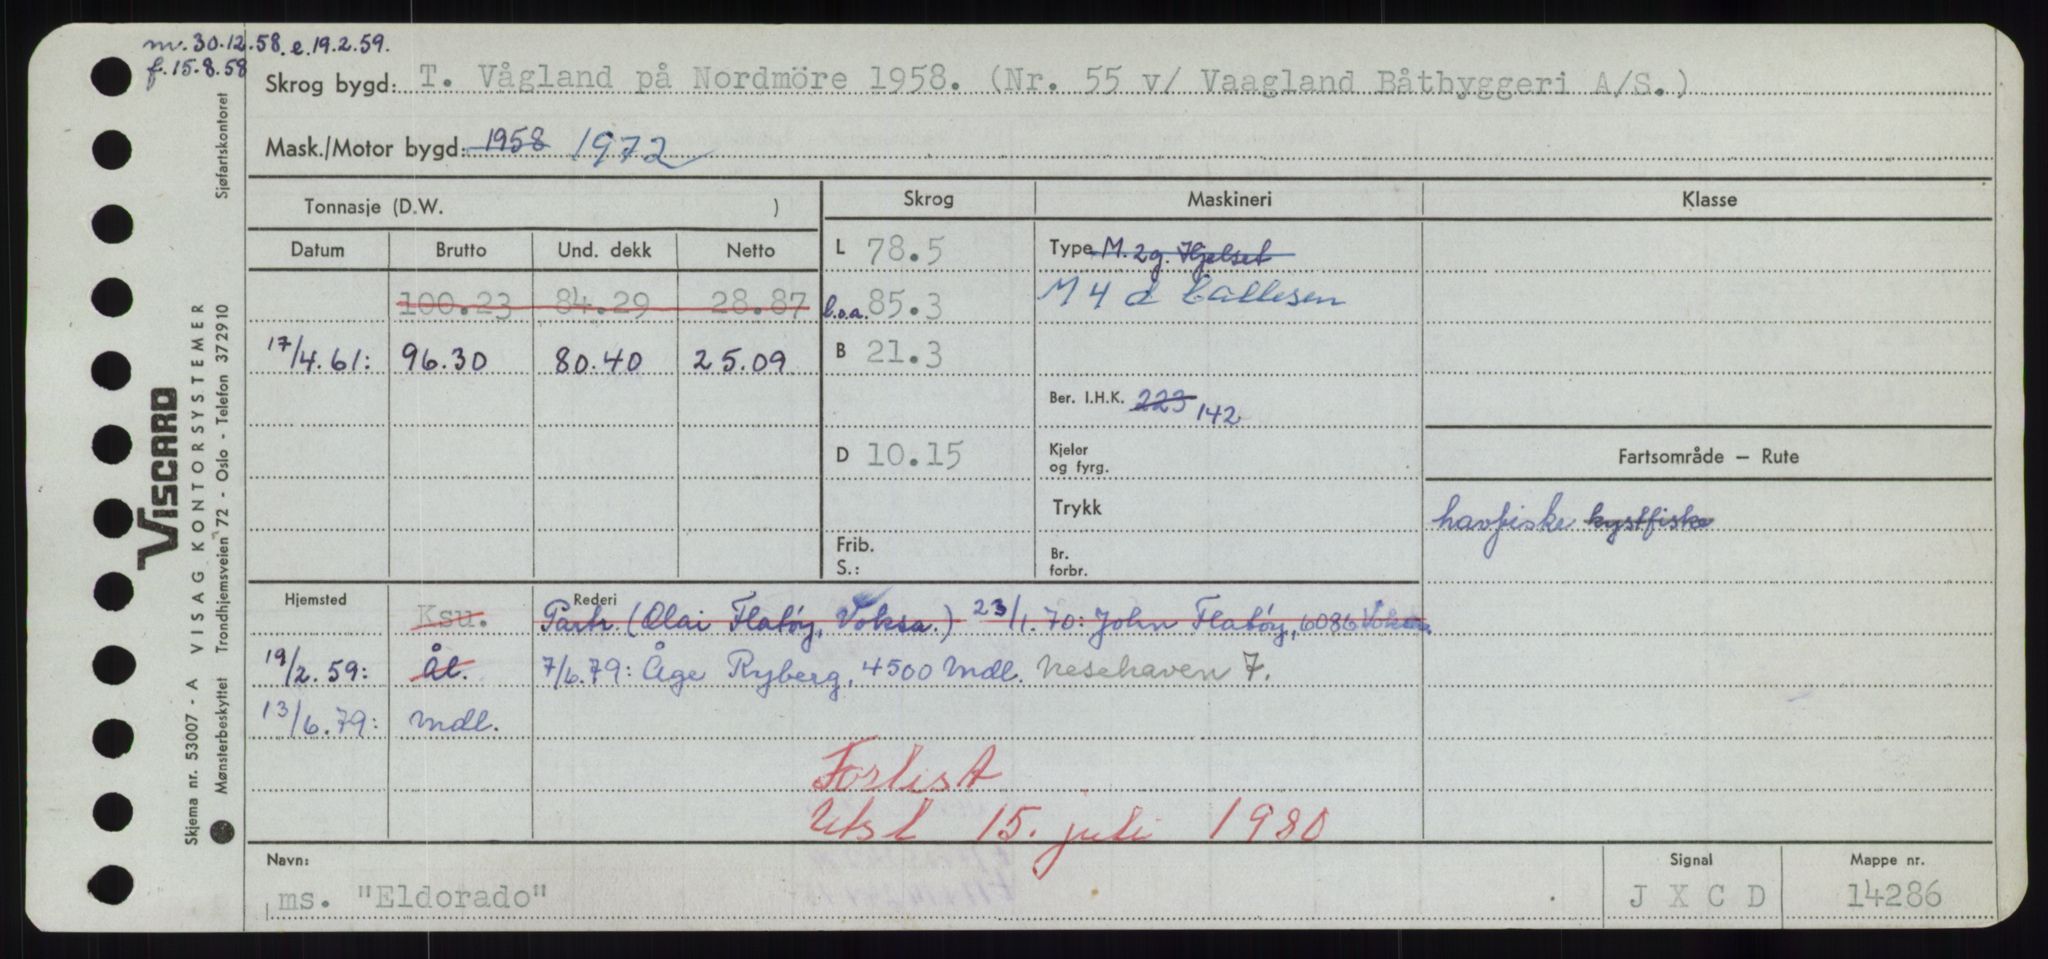 m. 30.12.58. e. 19.2.59.
f. 15.8.58
Skrog bygd: T. Vågland på Nordmöre 1958. (Nr. 55 v/ Vaagland Båtbyggeri A/S.)
Mask./Motor bygd: 1958 1972
Tonnasje (D.W. )
Skrog
Maskineri
Klasse
Datum Brutto Und. dekk Netto
L 78.5
Type M. 2g. Hjelset
100.23 84.29 28.87
l.o.a. 85.3
M 4 d Callesen
17/4.61: 96.30 80.40 25.09
B 21.3
Ber. I.H.K. 223 142
D 10.15
Kjeler
og fyrg.
Fartsområde — Rute
Trykk
havfiske kystfiske
Frib.
S.:
Br.
forbr.
Hjemsted
Rederi
Ksu. Partr. (Olai Flatöy, Voksa.) 23/1.70: John Flatöy, 6086 Voksa.
19/2.59: Ål. 7/6.79: Åge Ryberg, 4500 Mdl. Nesehaven 7.
13/6.79: Mdl.
Forlist
Utsl 15. juli 1980
Navn:
ms. "Eldorado"
Signal
J X C D
Mappe nr.
14286
Skjema nr. 53007 - A VISAG KONTORSYSTEMER
VISCARD
Mønsterbeskyttet Trondhjemsveien 72 - Oslo - Telefon 372910 Sjøfartskontoret